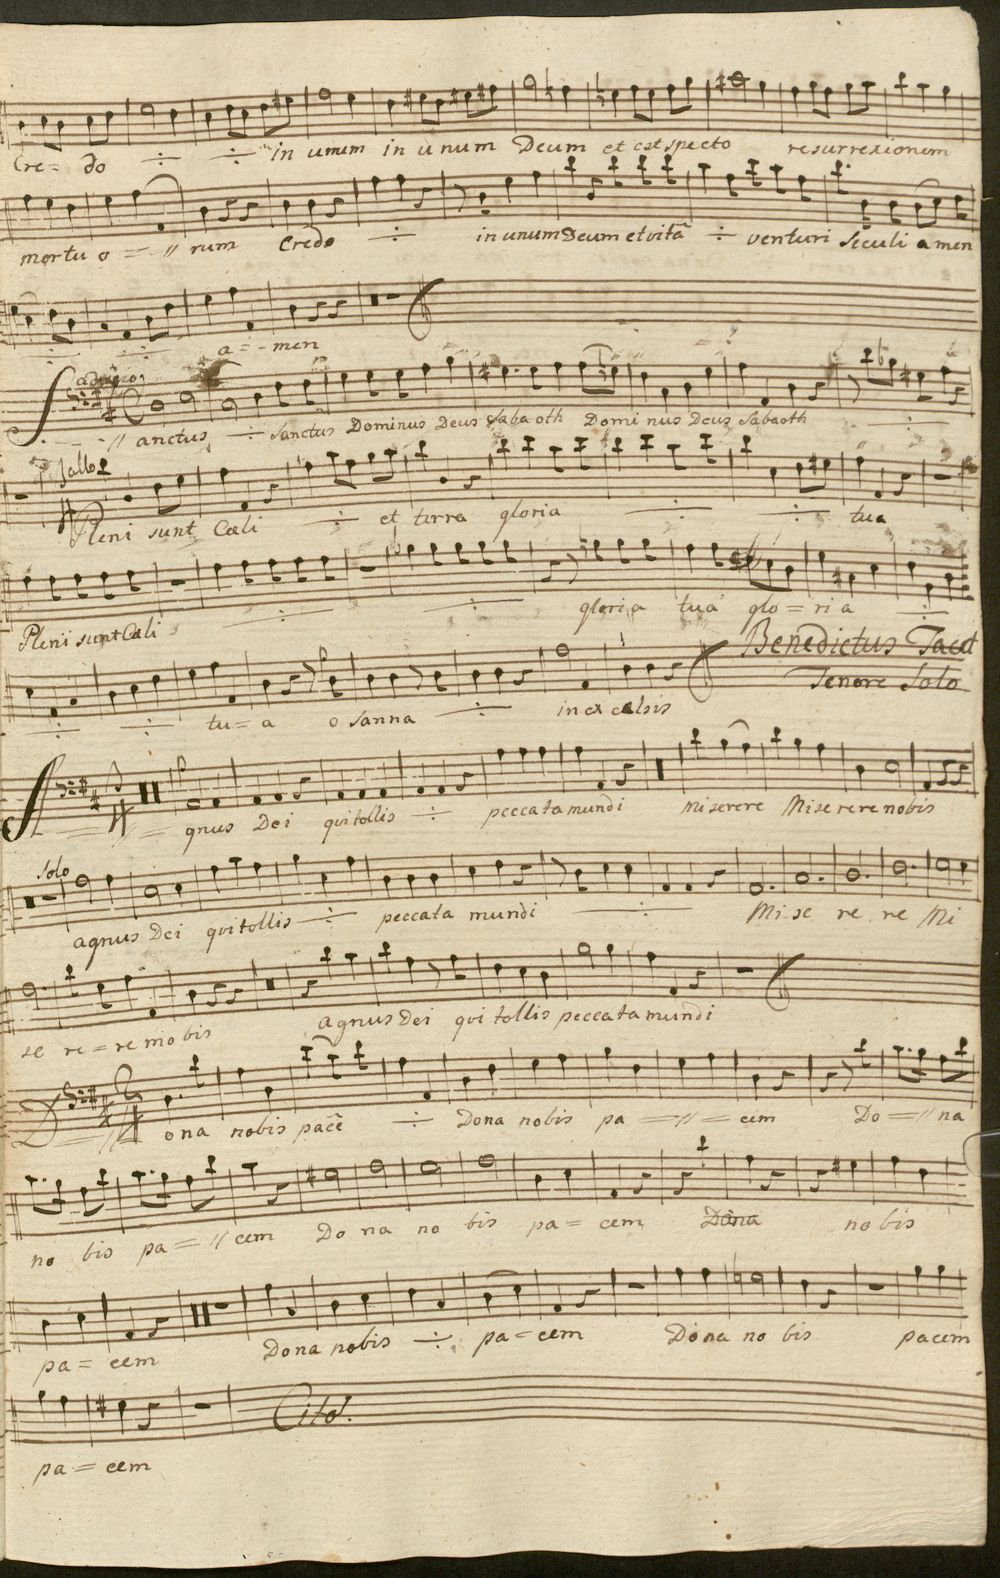 Cre= do in unum in unum Deum et exspecto resurrexionem
mortu o =// rum Credo in unum Deum et vitã venturi seculi amen
a=- men
adagio
// anctus Sanctus Dominus Deus Sabaoth Domi nus Deus Sabaoth
allo
Pleni sunt Cæli et terra gloria tua
Pleni sunt Cæli gloria tua glo=ri a
Benedictus Tacet
Tenore Solo
tu=a o sanna in ex celsis
A gnus Dei qui tollis peccata mundi miserere Mise re re nobis
Solo
agnus Dei qui tollis peccata mundi Mi se re re Mi
se re=re no bis agnus Dei qui tollis peccata mundi
D ona nobis pacẽ Dona nobis pa =//= cem Do =// na
no bis pa=// cem Do na no bis pa= cem Dona no bis
pa= cem Dona nobis pa= cem Dona no bis pacem
Cito.
pa= cem